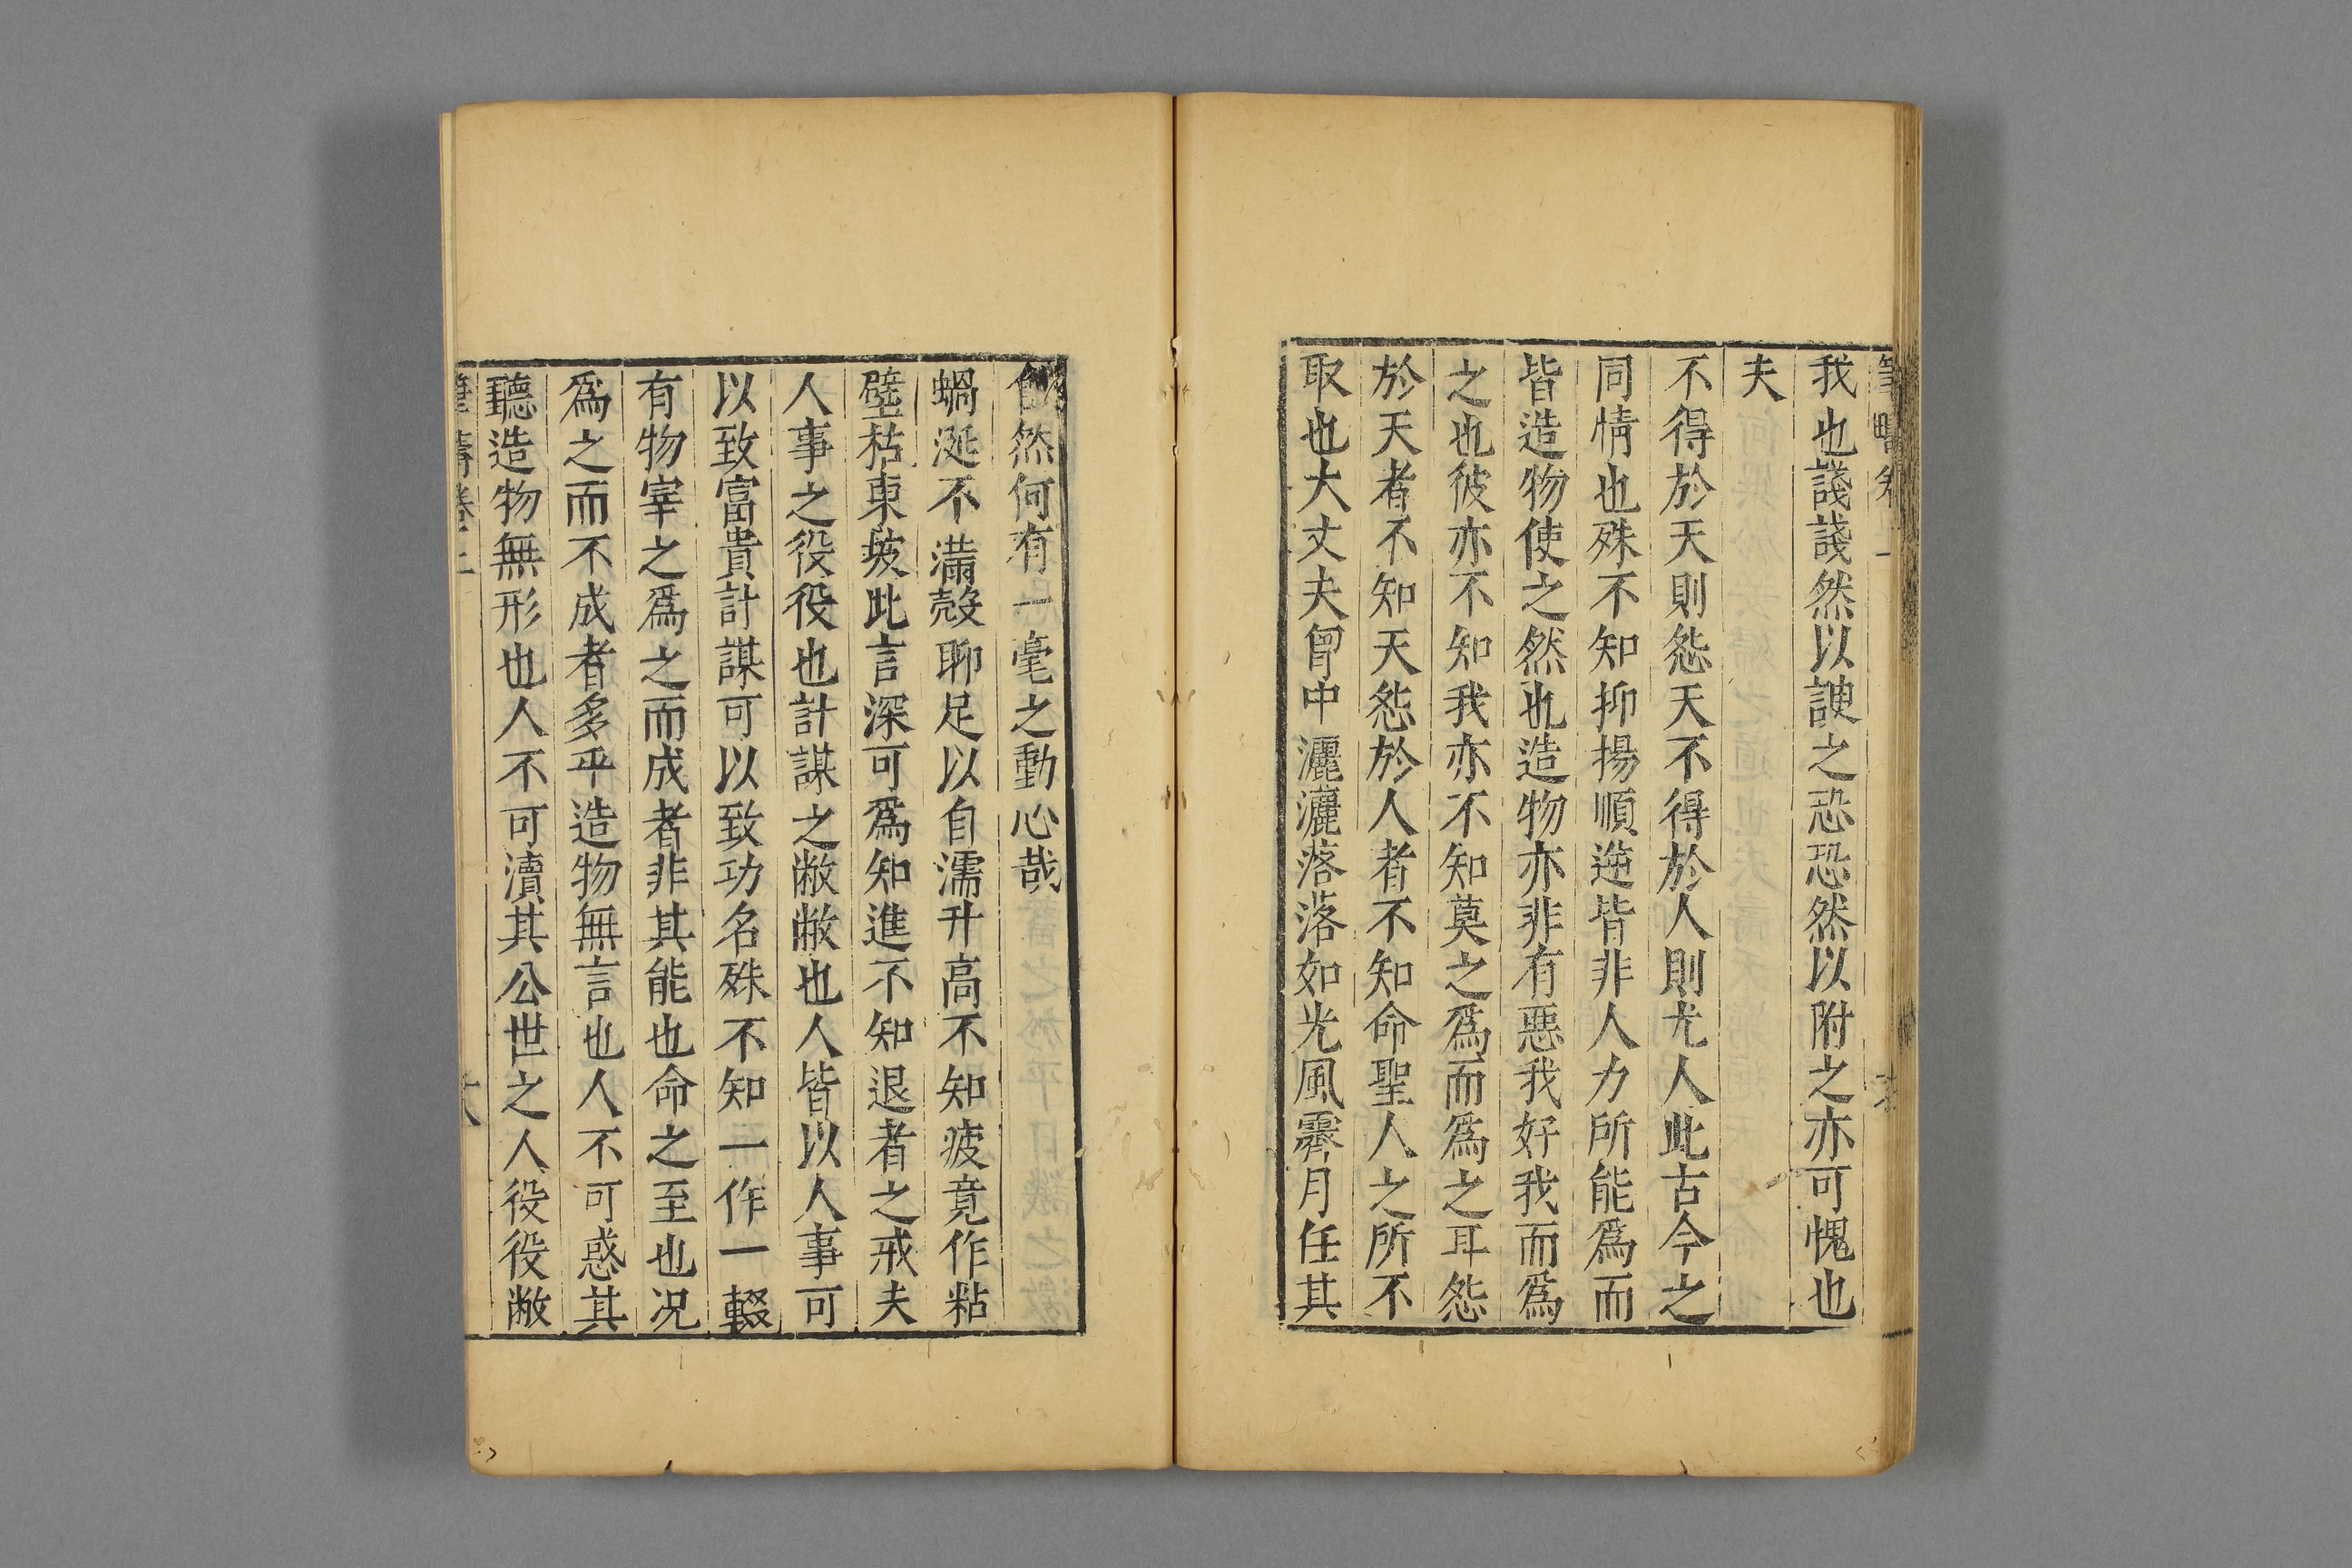 我也諓諓然以諛之恐恐然以附之亦可愧也
夫
不得於天則怨天不得於人則尤人此古今之
同情也殊不知抑揚順逆皆非人力所能爲而
皆造物使之然也造物亦非有惡我好我而爲
之也彼亦不知我亦不知莫之爲而爲之耳怨
於天者不知天怨於人者不知命聖人之所不
取也大丈夫曾中灑灑落落如光風霽月任其
然何有一毫之動心哉
蝸涎不滿殼聊足以自濡升高不知疲竟作粘
壁枯東坡此言深可爲知進不知退者之戒夫
人事之役役也計謀之敝敝也人皆以人事可
以致富貴計謀可以致功名殊不知一作一輟
有物宰之爲之而成者非其能也命之至也况
爲之而不成者多乎造物無言也人不可惑其
聽造物無形也人不可瀆其公世之人役役敝